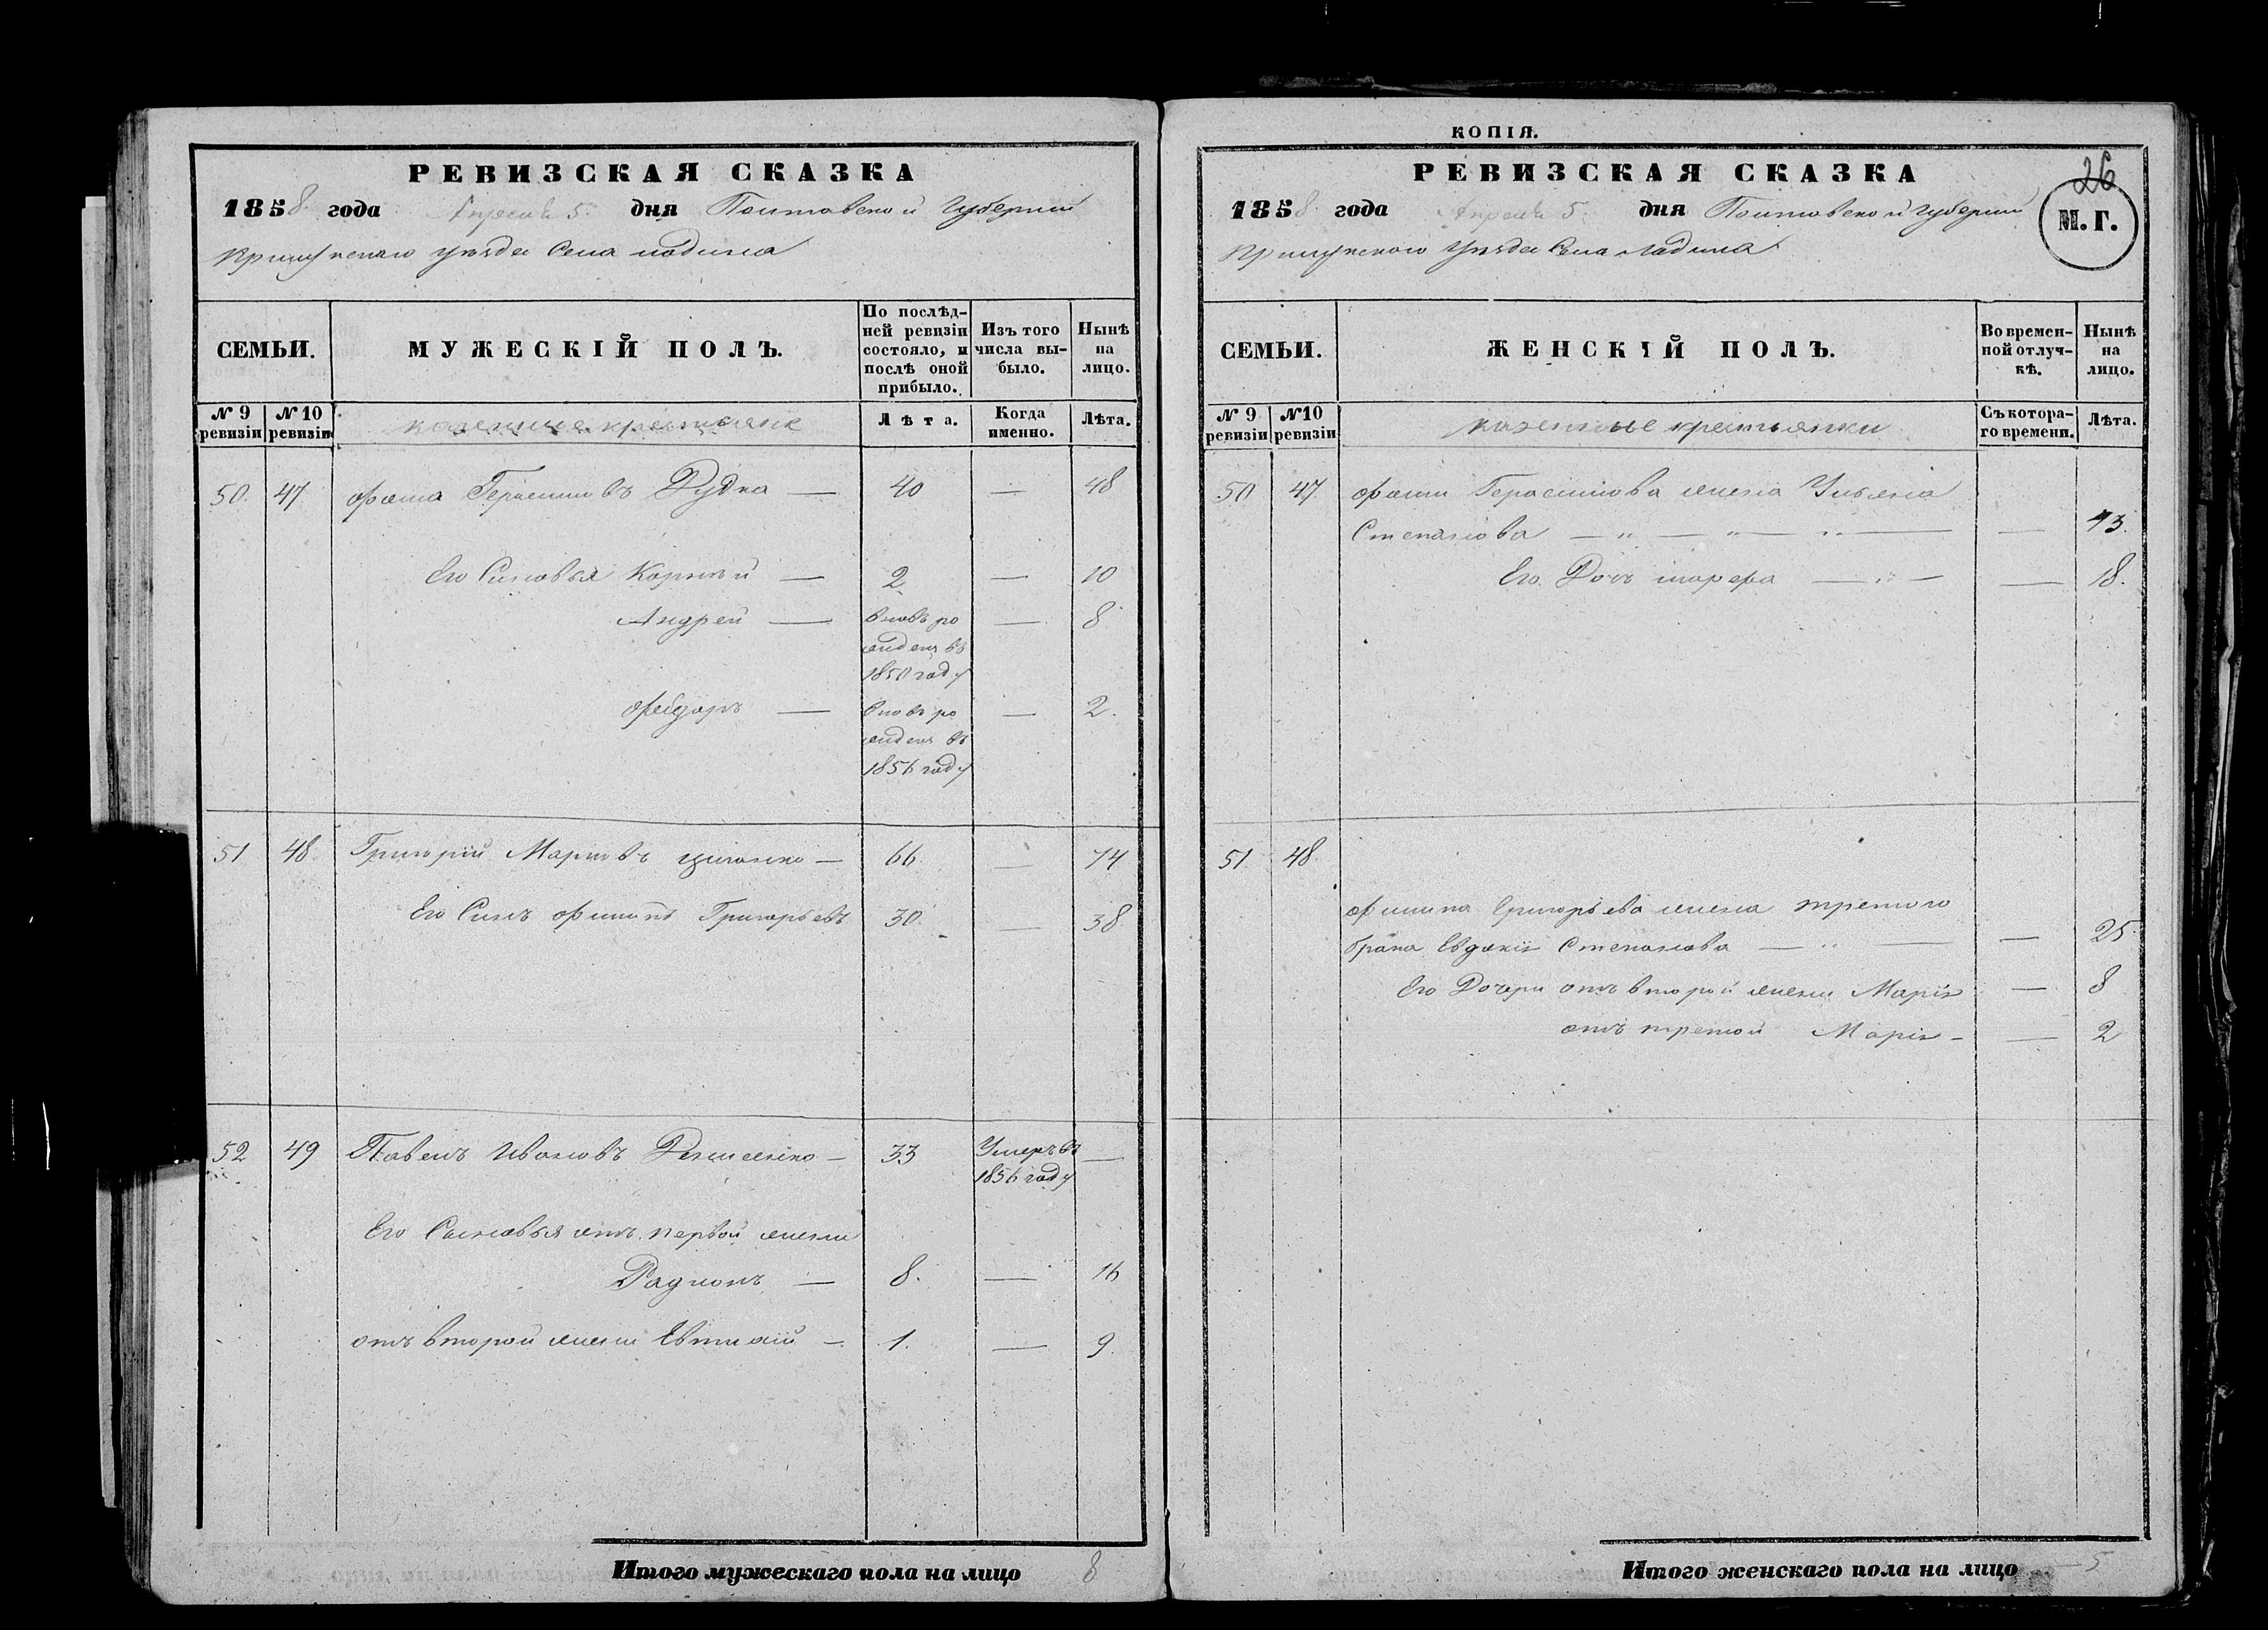 РЕВИЗСКАЯ СКАЗКА
1858 года Апреля 5 дня Полтавской Губернии
Прилуцкаго уезда Села Ладина
СЕМЬИ.
МУЖЕСКІЙ ПОЛЪ.
По послѣд-
ней ревизіи
состояло, и
послѣ оной
прибыло.
Изъ того
числа вы-
было.
Нынѣ
на
лицо.
№ 9
ревизіи
№ 10
ревизіи
казенные крестьяне
Лѣта.
Когда
именно.
Лѣта.
50. 47 Фома Герасимовъ Дудка — 40 — 48
Его Сыновья Корнѣй — 2 — 10
Андрей — вновь ро — 8
жденъ въ
1850 году
Федоръ — вновь ро — 2.
жденъ въ
1856 году
51 48 Григорій Марковъ — 66. — 74
Его Сынъ Филипъ Григорьевъ 30. — 38.
52 49 Павелъ Ивановъ — 33 Умеръ въ —
1856 году
Его Сыновья отъ первой жены
Радионъ — 8. — 16
отъ второй жены Евтихій — 1. — 9.
Итого мужескаго пола на лицо 8
КОПІЯ.
РЕВИЗСКАЯ СКАЗКА
26
М. Г.
1858 года Апреля 5 дня Полтавской Губернии
Прилуцкаго Уезда Села Ладина
СЕМЬИ.
ЖЕНСКІЙ ПОЛЪ.
Во времен-
ной отлуч-
кѣ.
Нынѣ
на
лицо.
№ 9
ревизіи
№10
ревизіи
казенные крестьянки
Съ котора-
го времени.
Лѣта.
50 47 Фомы Герасимова жена Ульяна
Степанова — " — " — " — — 43.
Его Дочь — " — — 18.
51. 48.
Филипа Григорьева жена третого
брака Евдокія Степанова — " — — 25
Его Дочери отъ второй жены Марія — 8
отъ третой Марія — — 2
Итого женскаго пола на лицо 5